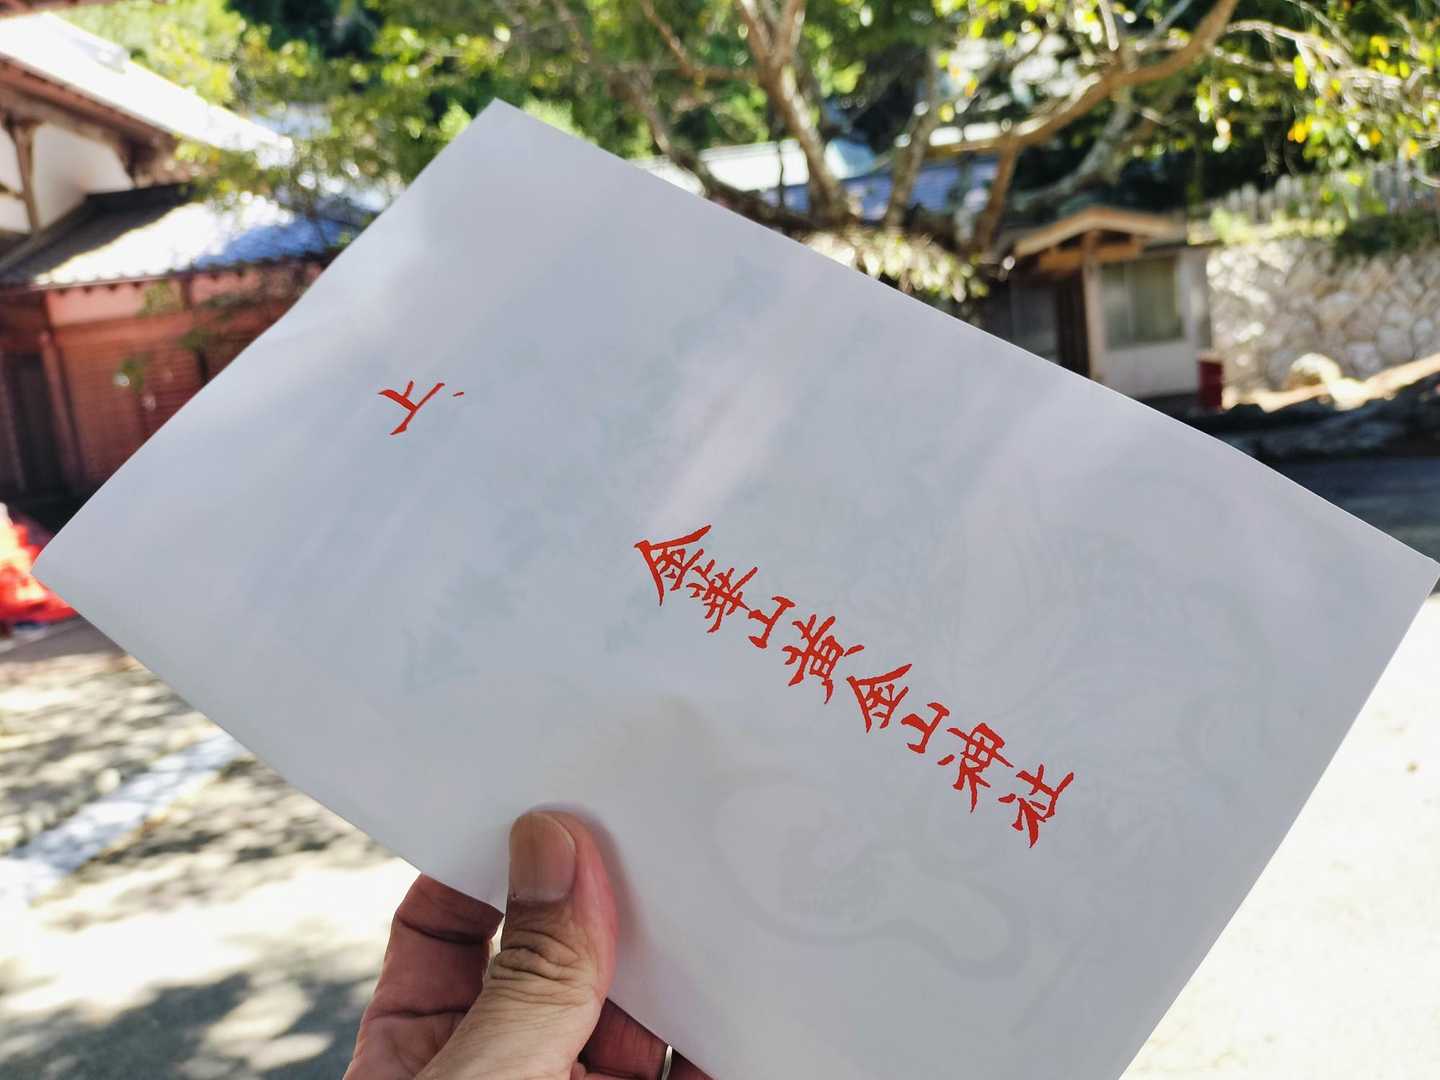 上
金華山黄金山神社